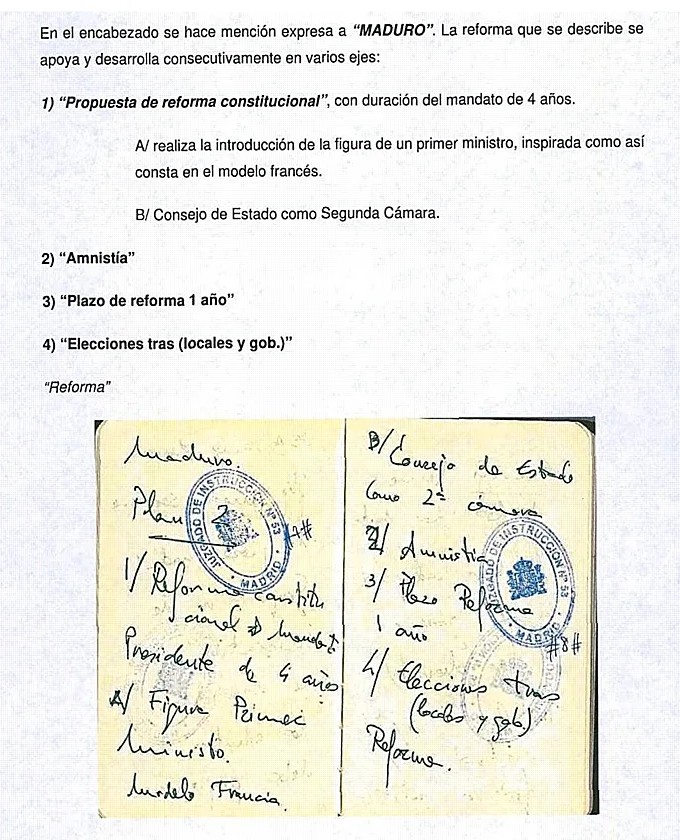 En el encabezado se hace mención expresa a “MADURO”. La reforma que se describe se
apoya y desarrolla consecutivamente en varios ejes:
1) “Propuesta de reforma constitucional”, con duración del mandato de 4 años.
A/ realiza la introducción de la figura de un primer ministro, inspirada como así
consta en el modelo francés.
B/ Consejo de Estado como Segunda Cámara.
2) “Amnistía”
3) “Plazo de reforma 1 año”
4) “Elecciones tras (locales y gob.)”
“Reforma”
Maduro.
Plan 2
JUZGADO DE INSTRUCCIÓN Nº 53
MADRID
#7#
1/ Reforma constitu
cional Mandato
Presidente de 4 años
A/ Figura Primer
Ministro.
Modelo Francia.
B/ Consejo de Estado
Como 2ª cámara
2/ Amnistía
3/ Plazo Reforma
1 año
JUZGADO DE INSTRUCCIÓN Nº 53
MADRID
#8#
4/ Elecciones tras
(locales y gob.)
Reforma.